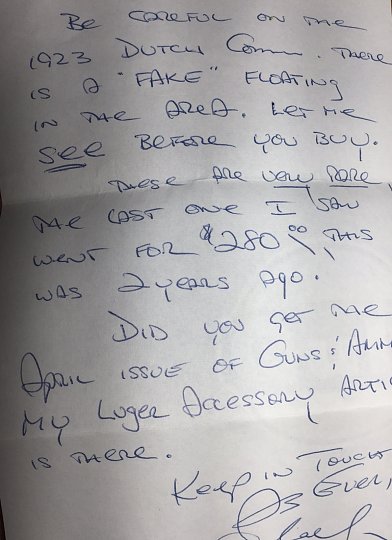 BE CAREFUL ON THE
1923 DUTCH COMM. THERE
IS A "FAKE" FLOATING
IN THE AREA. LET ME
SEE BEFORE YOU BUY.
THESE ARE VERY RARE
THE LAST ONE I SAW
WENT FOR $280.00 THIS
WAS 2 YEARS AGO.
DID YOU GET THE
APRIL ISSUE OF GUNS & AMM
MY LUGER ACCESSORY ARTIC
IS THERE.
KEEP IN TOUCH
AS EVER,